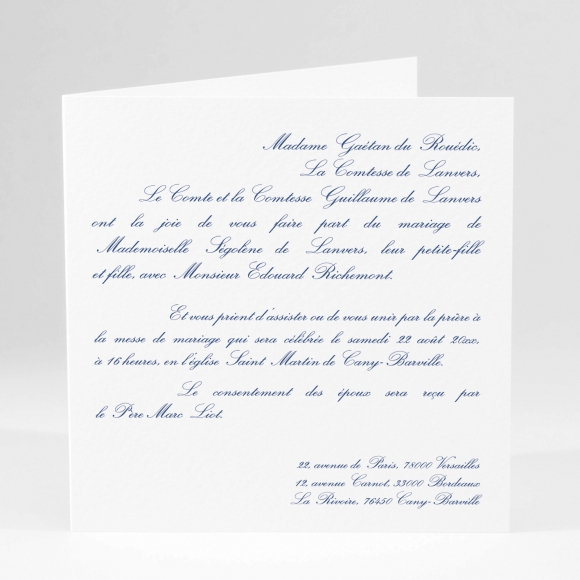 Madame Gaétan du Rouëdic,
La Comtesse de Lanvers,
Le Comte et la Comtesse Guillaume de Lanvers
ont la joie de vous faire part du mariage de
Mademoiselle Ségolène de Lanvers, leur petite-fille
et fille, avec Monsieur Edouard Richemont.
Et vous prient d'assister ou de vous unir par la prière à
la messe de mariage qui sera célébrée le samedi 22 août 20xx,
à 16 heures, en l'église Saint Martin de Cany-Barville.
Le consentement des époux sera reçu par
le Père Marc Liot.
22, avenue de Paris, 78000 Versailles
12, avenue Carnot, 33000 Bordeaux
La Rivoire, 76450 Cany-Barville